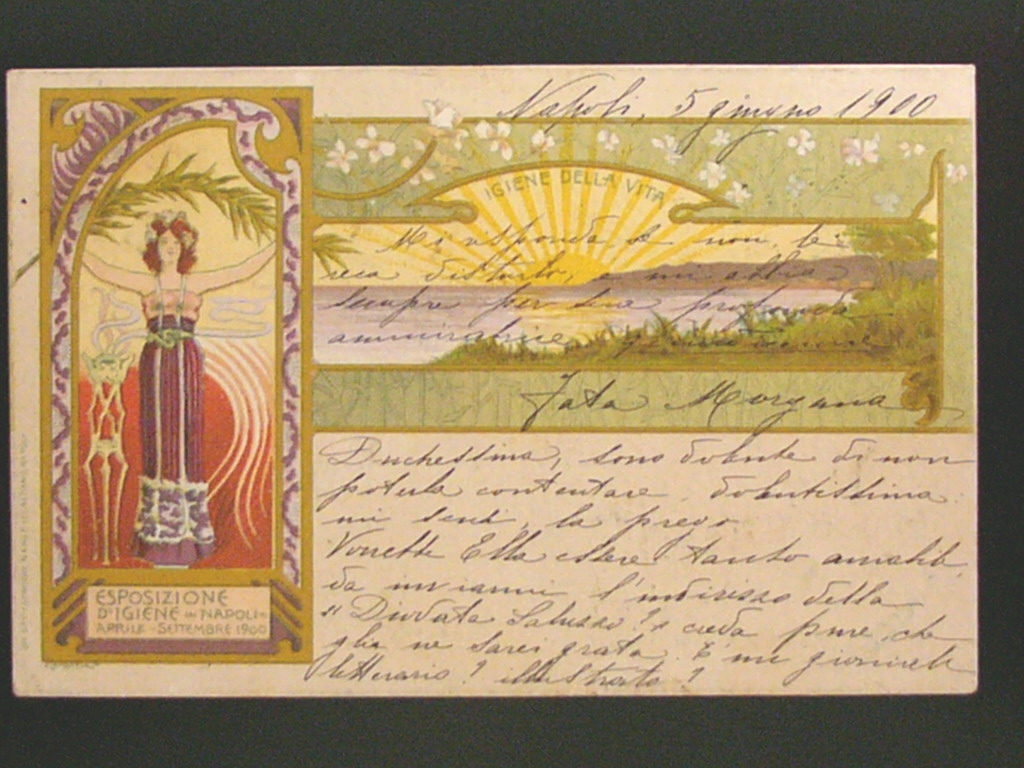 Napoli, 5 giugno 1900
IGIENE DELLA VITA
Mi risponda se non, le
reca disturbo, e mi abbia
sempre per sua profonda
ammiratrice
Fata Morgana
Duchessina, sono dolente di non
poterla contentare, dolentissima
mi scusi, la prego
Vorrebbe Ella essere tanto amabile
da inviarmi l'indirizzo della
" Diodata Saluzzo"? creda pure, che
glie ne sarei grata. È un giornale
letterario? illustrato?
ESPOSIZIONE
D'IGIENE IN NAPOLI
APRILE - SETTEMBRE 1900